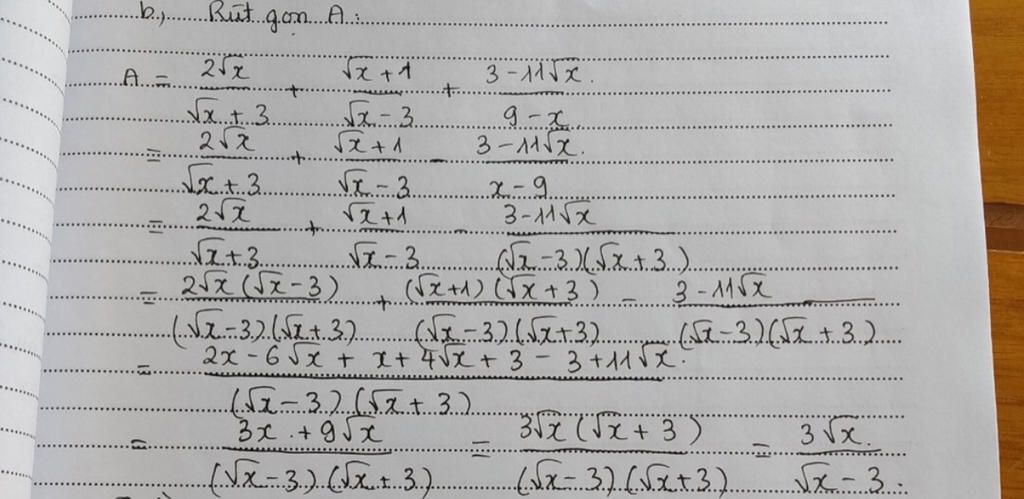 b, Rút gọn A:
A = 2√x / √x + 3 + √x + 1 / √x - 3 + 3 - 11√x / 9 - x
= 2√x / √x + 3 + √x + 1 / √x - 3 - 3 - 11√x / x - 9
= 2√x / √x + 3 + √x + 1 / √x - 3 - 3 - 11√x / (√x - 3)(√x + 3)
= 2√x (√x - 3) / (√x - 3).(√x + 3) + (√x + 1)(√x + 3) / (√x - 3)(√x + 3) - 3 - 11√x / (√x - 3)(√x + 3)
= 2x - 6√x + x + 4√x + 3 - 3 + 11√x / (√x - 3)(√x + 3)
= 3x + 9√x / (√x - 3).(√x + 3) = 3√x (√x + 3) / (√x - 3)(√x + 3) = 3√x / √x - 3.